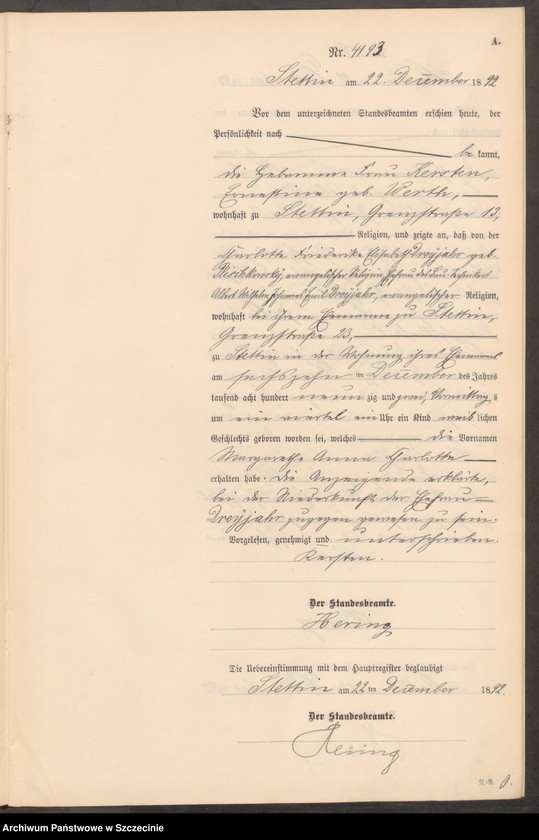 A.
Nr. 4193
Stettin am 22. December 1892
Vor dem unterzeichneten Standesbeamten erschien heute, der
Persönlichkeit nach
be kannt,
die Hebamme Frau Kersten,
Ernestine geb. Werth,
wohnhaft zu Stettin, Grenzstraße 13,
Religion, und zeigte an, daß von der
Charlotte Friederike Elisabeth Dreyjahr geb.
evangelischer Religion, Ehefrau des
Albert Wilhelm Emil Dreyjahr, evangelischer Religion,
wohnhaft bei ihrem Ehemanne zu Stettin,
Grenzstraße 23,
zu Stettin in der Wohnung ihres Ehemanns
am sechszehn ten December des Jahres
tausend acht hundert neun zig und zwei, Vormittags
um ein viertel ein Uhr ein Kind weib lichen
Geschlechts geboren worden sei, welches die Vornamen
Margarethe Anna Charlotte
erhalten habe. die Anzeigende erklärte,
bei der Niederkunft der Ehefrau
Dreyjahr zugegen gewesen zu sein.
Vorgelesen, genehmigt und unterschrieben.
Kersten.
Der Standesbeamte.
Hering
Die Uebereinstimmung mit dem Hauptregister beglaubigt
Stettin am 22 ten December 1892.
Der Standesbeamte.
Hering
Archiwum Państwowe w Szczecinie